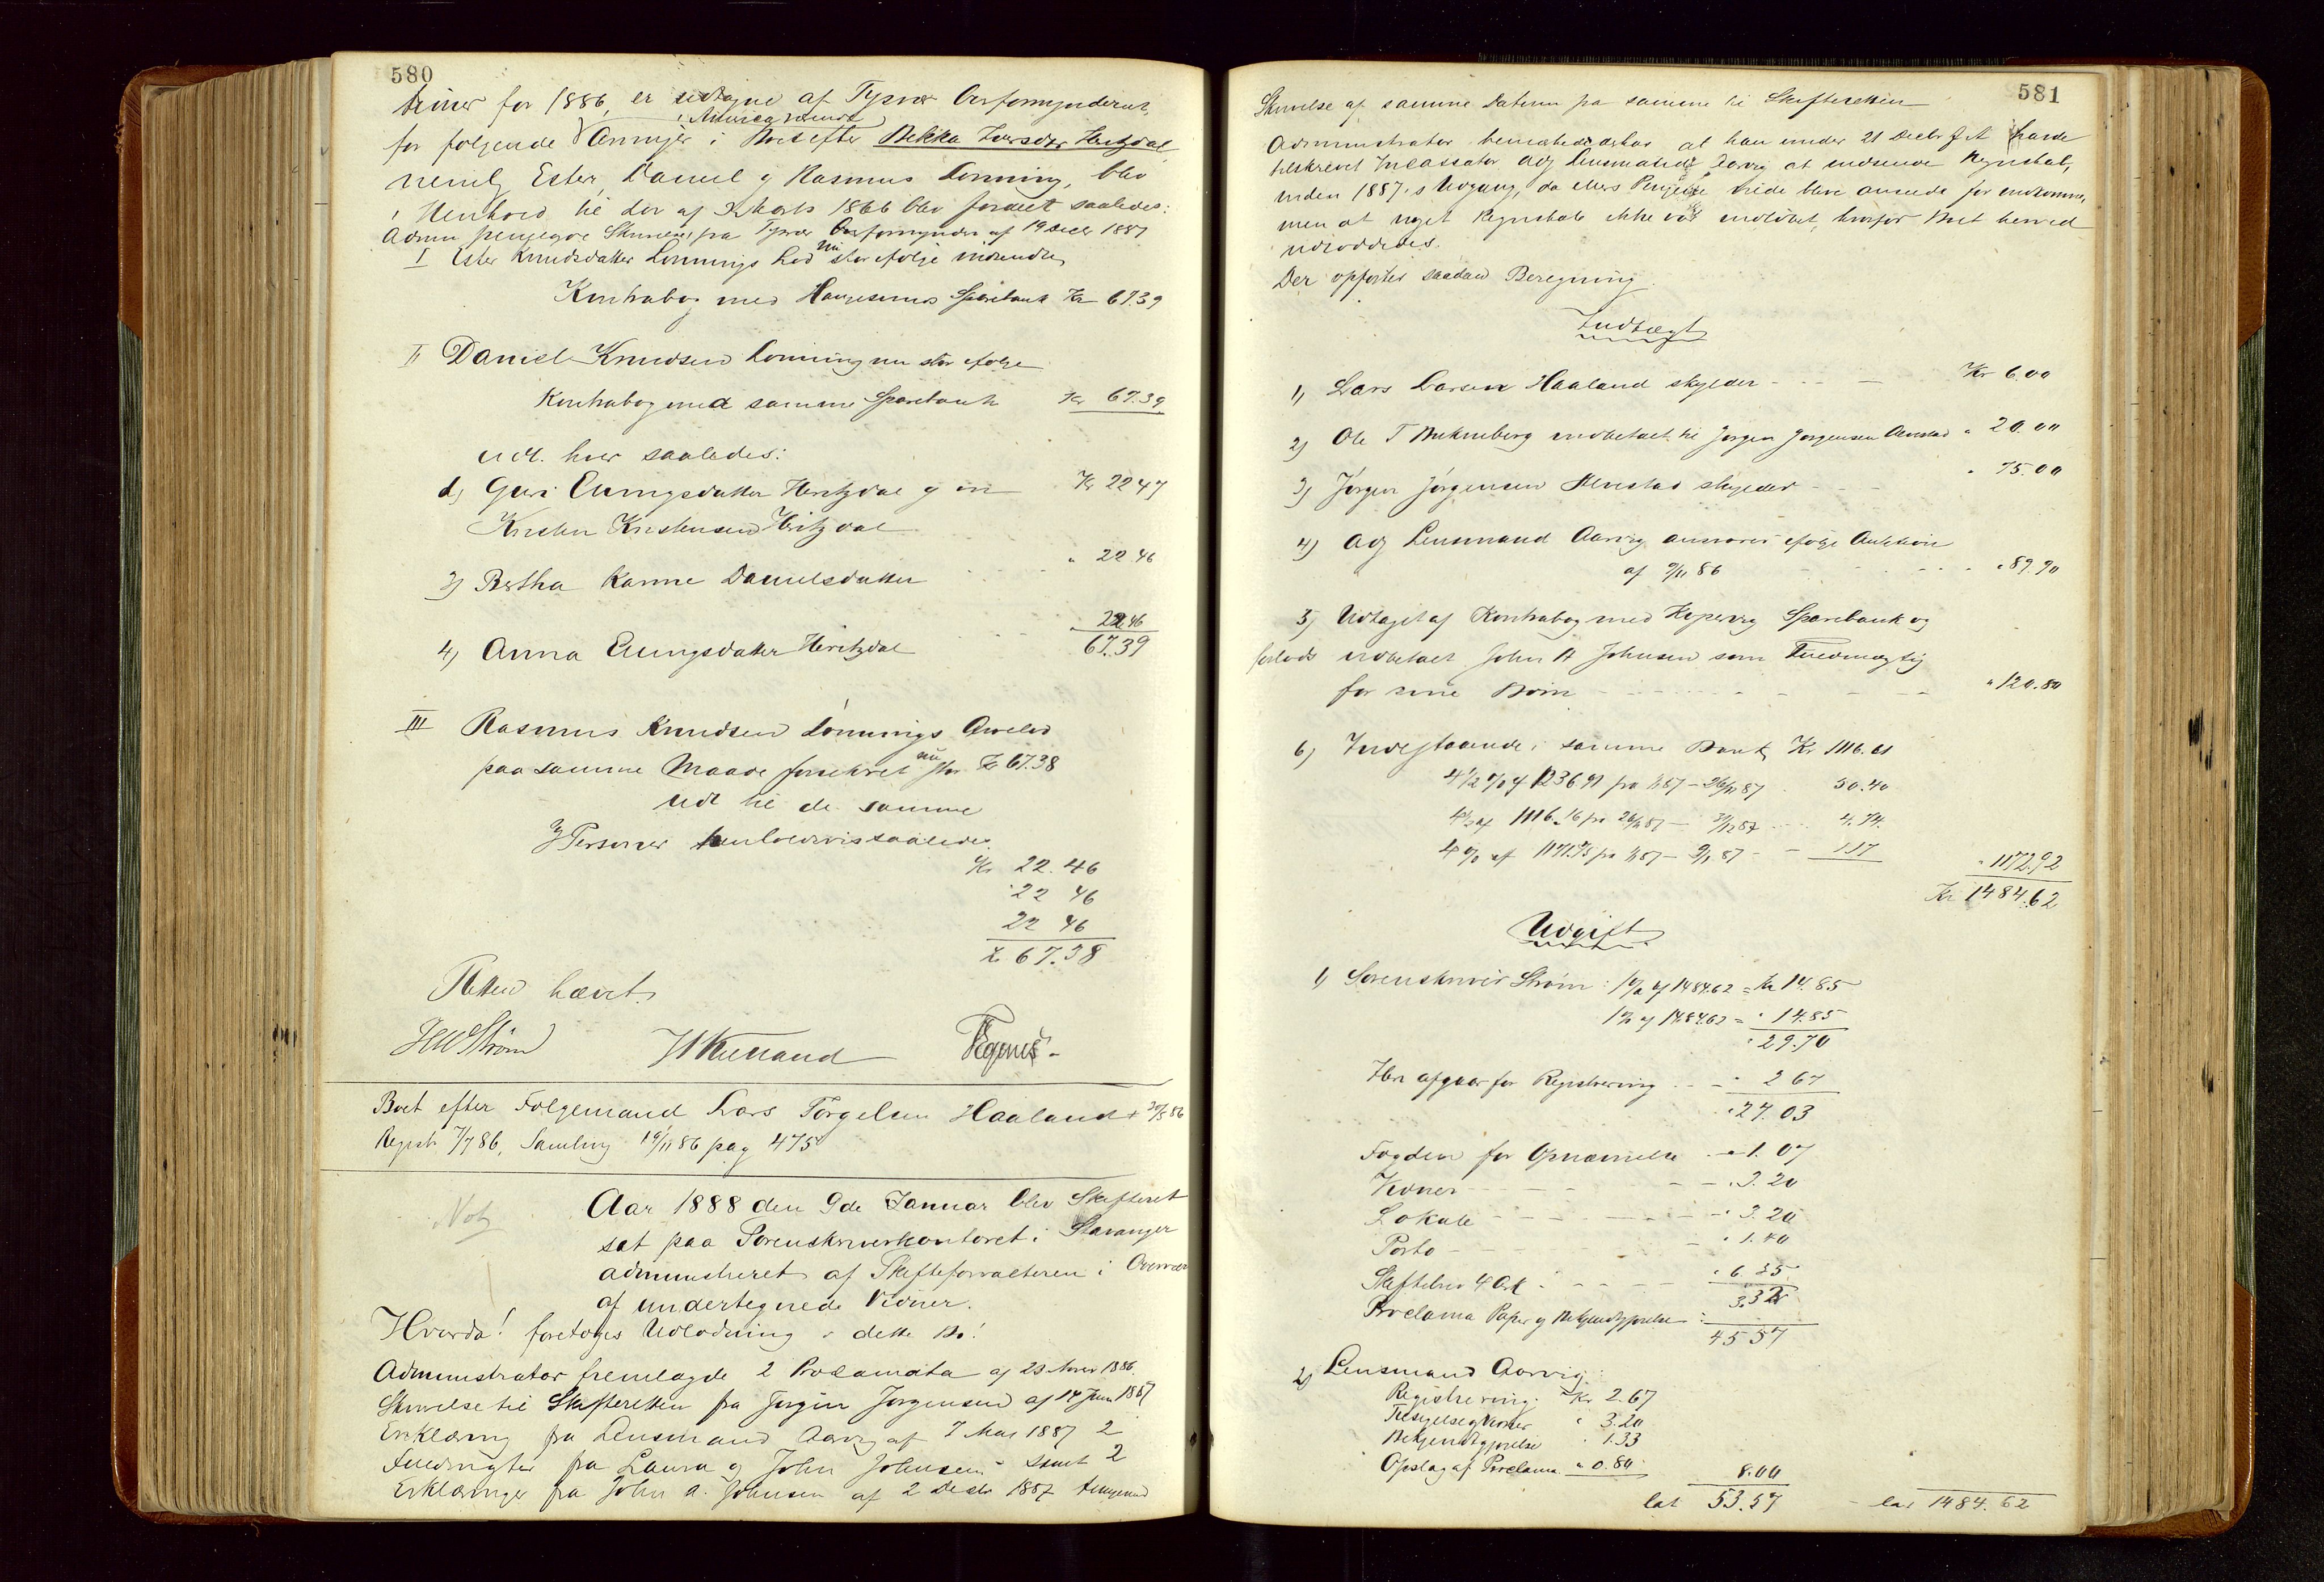 580
for 1886, er udtagne af Tysvær Overformynderie,
i Amerika værende
for følgende Arvinger i Boet efter Rekka Iversdtr Hervigdal,
nemlig Ester, Daniel og Rasmus Lønning, blev
i Henhold til Lov af 1866 blev fordelt saaledes:
Skrivelse fra Tysvær Overformynder af 19 Decbr 1887
I Ester Knudsdatter Lønnings Lod nu stor ifølge indsendte
Kontrabog med Haugesunds Sparebank Kr 67.39
II Daniel Knudsen Lønning nu stor ifølge
Kontrabog med samme Sparebank Kr 67.39
udl. hver saaledes:
Guri Ellingsdatter Hervigdal g m Kr 22 47
Kristen Kristensen Hervigdal
3) Bertha Karine Danielsdatter " 22.46
4) Anna Ellingsdatter Hervigdal " 22.46
67.39
III Rasmus Knudsen Lønnings Arvelod
paa samme Maade forsikret nu stor Kr 67.38
udl til de samme
3 Personer henholdsvis saaledes
Kr 22.46
" 22 46
22 46
Kr 67.38
Retten hævet.
Strøm
Boet efter Følgemand Lars Torgelsen Haaland + 30/5 86
Registr. 7/7 86, Samling 19/11 86 pag 475
Not
Aar 1888 den 9de Januar blev Skifteret
sat paa Sorenskriverkontoret i Stavanger
administreret af Skifteforvalteren i Overvær
af undertegnede Vidner.
Hvorda! foretoges Udlodning i dette Bo!
Administrator fremlagde 2 Proclamata af 23 Novbr 1886.
Skrivelse til Skifteretten fra Jørgen Jørgensen af 14 Juni 1887
Erklæring fra Lensmand Aarvig af 7 Mai 1887 2
Fuldmagter fra Laura og John Johnsen samt 2
Erklæringer fra John A. Johnsen af 2 Decbr 1887
581
Skrivelse af samme Datum fra samme til Skifteretten
Administrator bemærkede derhos at han under 21 Decbr f A havde
tilskrevet Incassator adj Lensmand Aarvig at indsende Regnskab,
inden 1887.s Udgang, da ellers Pengene vilde blive ansede for indkomne,
men at noget Regnskab ikke var indløbet, hvorfor Boet herved
udloddedes.
Der opførtes saadan Beregning.
Indtægt
1, Lars Larsen Haaland skylder Kr 6.00
2) Ole T indbetalt til Jørgen Jørgensen Alvestad " 20.00
3) Jørgen Jørgensen Alvestad skylder " 75.00
4) adj Lensmand Aarvig ansvarer ifølge Auktion
af 9/11 86 " 89.90
5) Udtaget af Kontrabog med Kopervig Sparebank og
forlods indbetalt John A Johnsen som Fuldmægtig
for sine Børn " 120.80
6) Indestaaende i samme Bank Kr 1116.61
4 1/2 % af 1236.91 fra 1/1 87 – 26/11 87 50.40
4 1/2 af 1116.16 fra 26/11 87 – 31/12 87 4.74
4 % af 1171.75 fra 1/1 87 – 9/1 87 1.17
" 1172.92
Kr 1484.62
Udgift
1) Sorenskriver Strøm: 1% af 1484.62 = Kr 14.85
1% af 1484.62 = " 14.85
" 29.70
Her afgaar for Registrering " 2 67
" 27.03
Fogden for Opnævnelse " 1.07
Vidner " 3.20
Lokale " 3.20
Porto " 1.40
Skiftebrev 4 Ark " 6.35
Proclama Papir og Bekjendtgjørelse 3.32
45 57
2) Lensmand Aarvig:
Registrering Kr 2.67
Tilsigelse af Vidner " 3.20
Bekjendtgjørelse " 1.33
Opslag af Proclama " 0.80 8.00
lat 53.57 – lat 1484.62